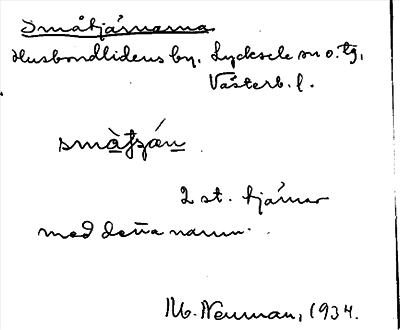 Småtjärnarna
Husbondlidens by. Lycksele sn o. tg.
Västerb. l.
2 st. tjärnar
med detta namn.
M. Neuman, 1934.